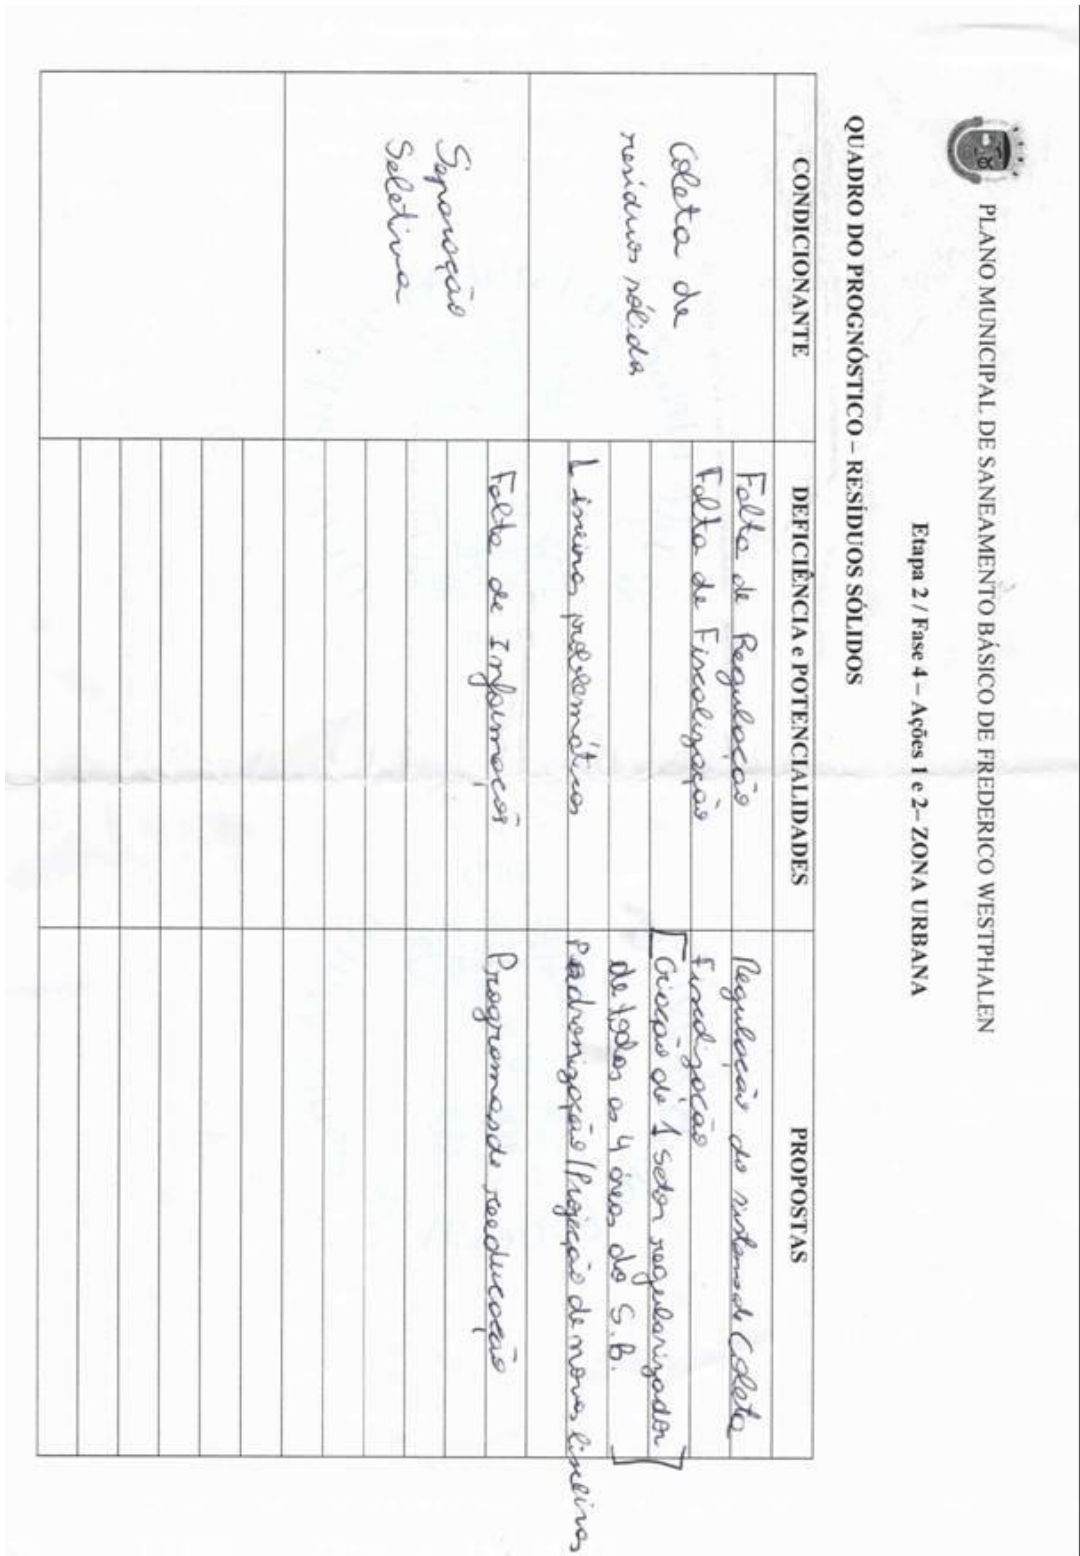 PLANO MUNICIPAL DE SANEAMENTO BÁSICO DE FREDERICO WESTPHALEN
Etapa 2 / Fase 4 – Ações 1 e 2– ZONA URBANA
QUADRO DO PROGNÓSTICO – RESÍDUOS SÓLIDOS
CONDICIONANTE
DEFICIÊNCIA e POTENCIALIDADES
PROPOSTAS
Coleta de
resíduos sólida
Falta de Regulação
Falta de Fiscalização
Lixeiras problemáticas
Regulação do sistema de Coleta
Fiscalização
[Criação de 1 setor regularizador]
de todas as 4 áreas do S.B.
Padronização/Projeção de novas lixeiras
Separação
Seletiva
Falta de Informações
Programas de reeducação